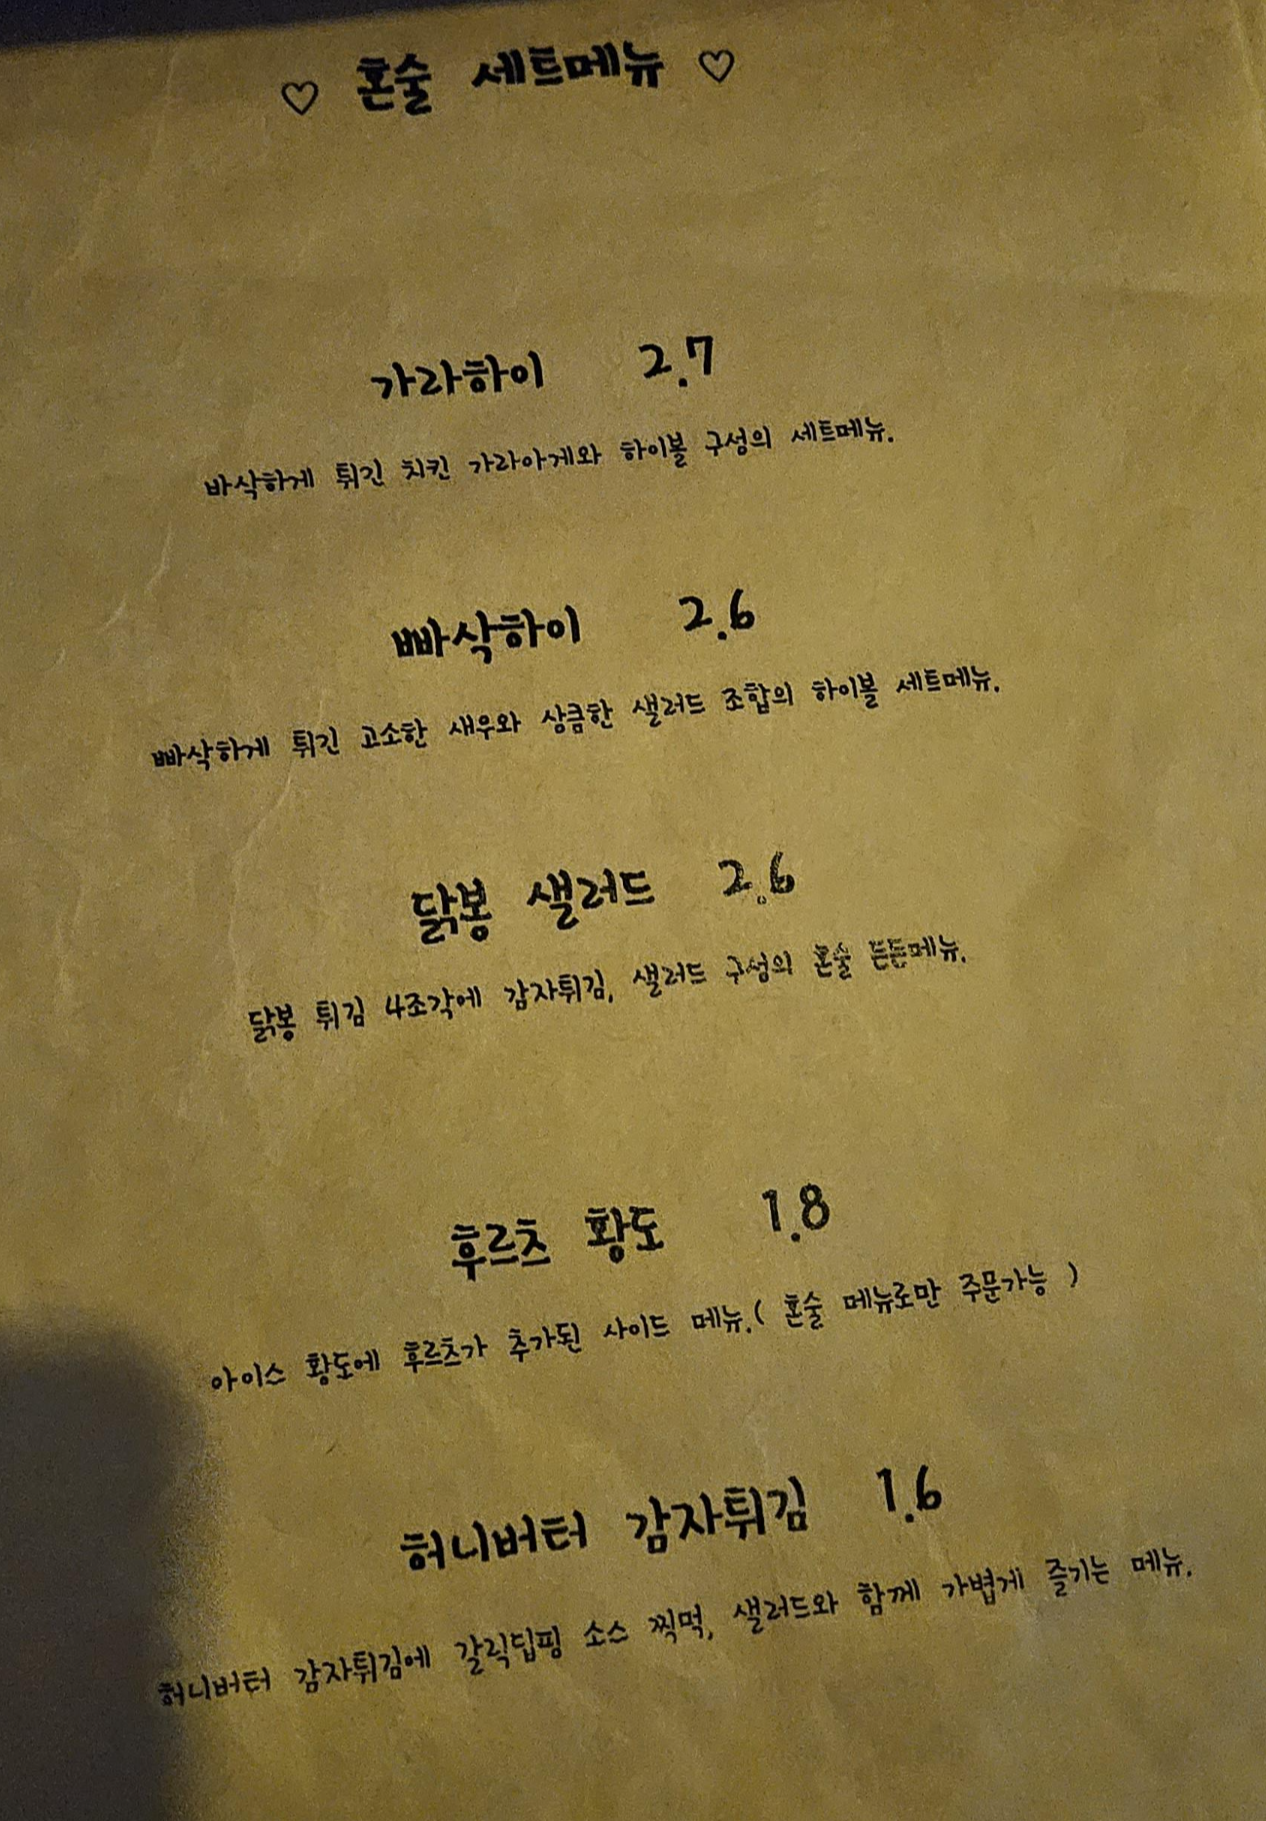 ♡ 혼술 세트메뉴 ♡
가라하이 2.7
바삭하게 튀긴 치킨 가라아게와 하이볼 구성의 세트메뉴.
빠삭하이 2.6
빠삭하게 튀긴 고소한 새우와 상큼한 샐러드 조합의 하이볼 세트메뉴.
닭봉 샐러드 2.6
닭봉 튀김 4조각에 감자튀김, 샐러드 구성의 혼술 든든메뉴.
후르츠 황도 1.8
아이스 황도에 후르츠가 추가된 사이드 메뉴.( 혼술 메뉴로만 주문가능 )
허니버터 감자튀김 1.6
허니버터 감자튀김에 갈릭딥핑 소스 찍먹, 샐러드와 함께 가볍게 즐기는 메뉴.